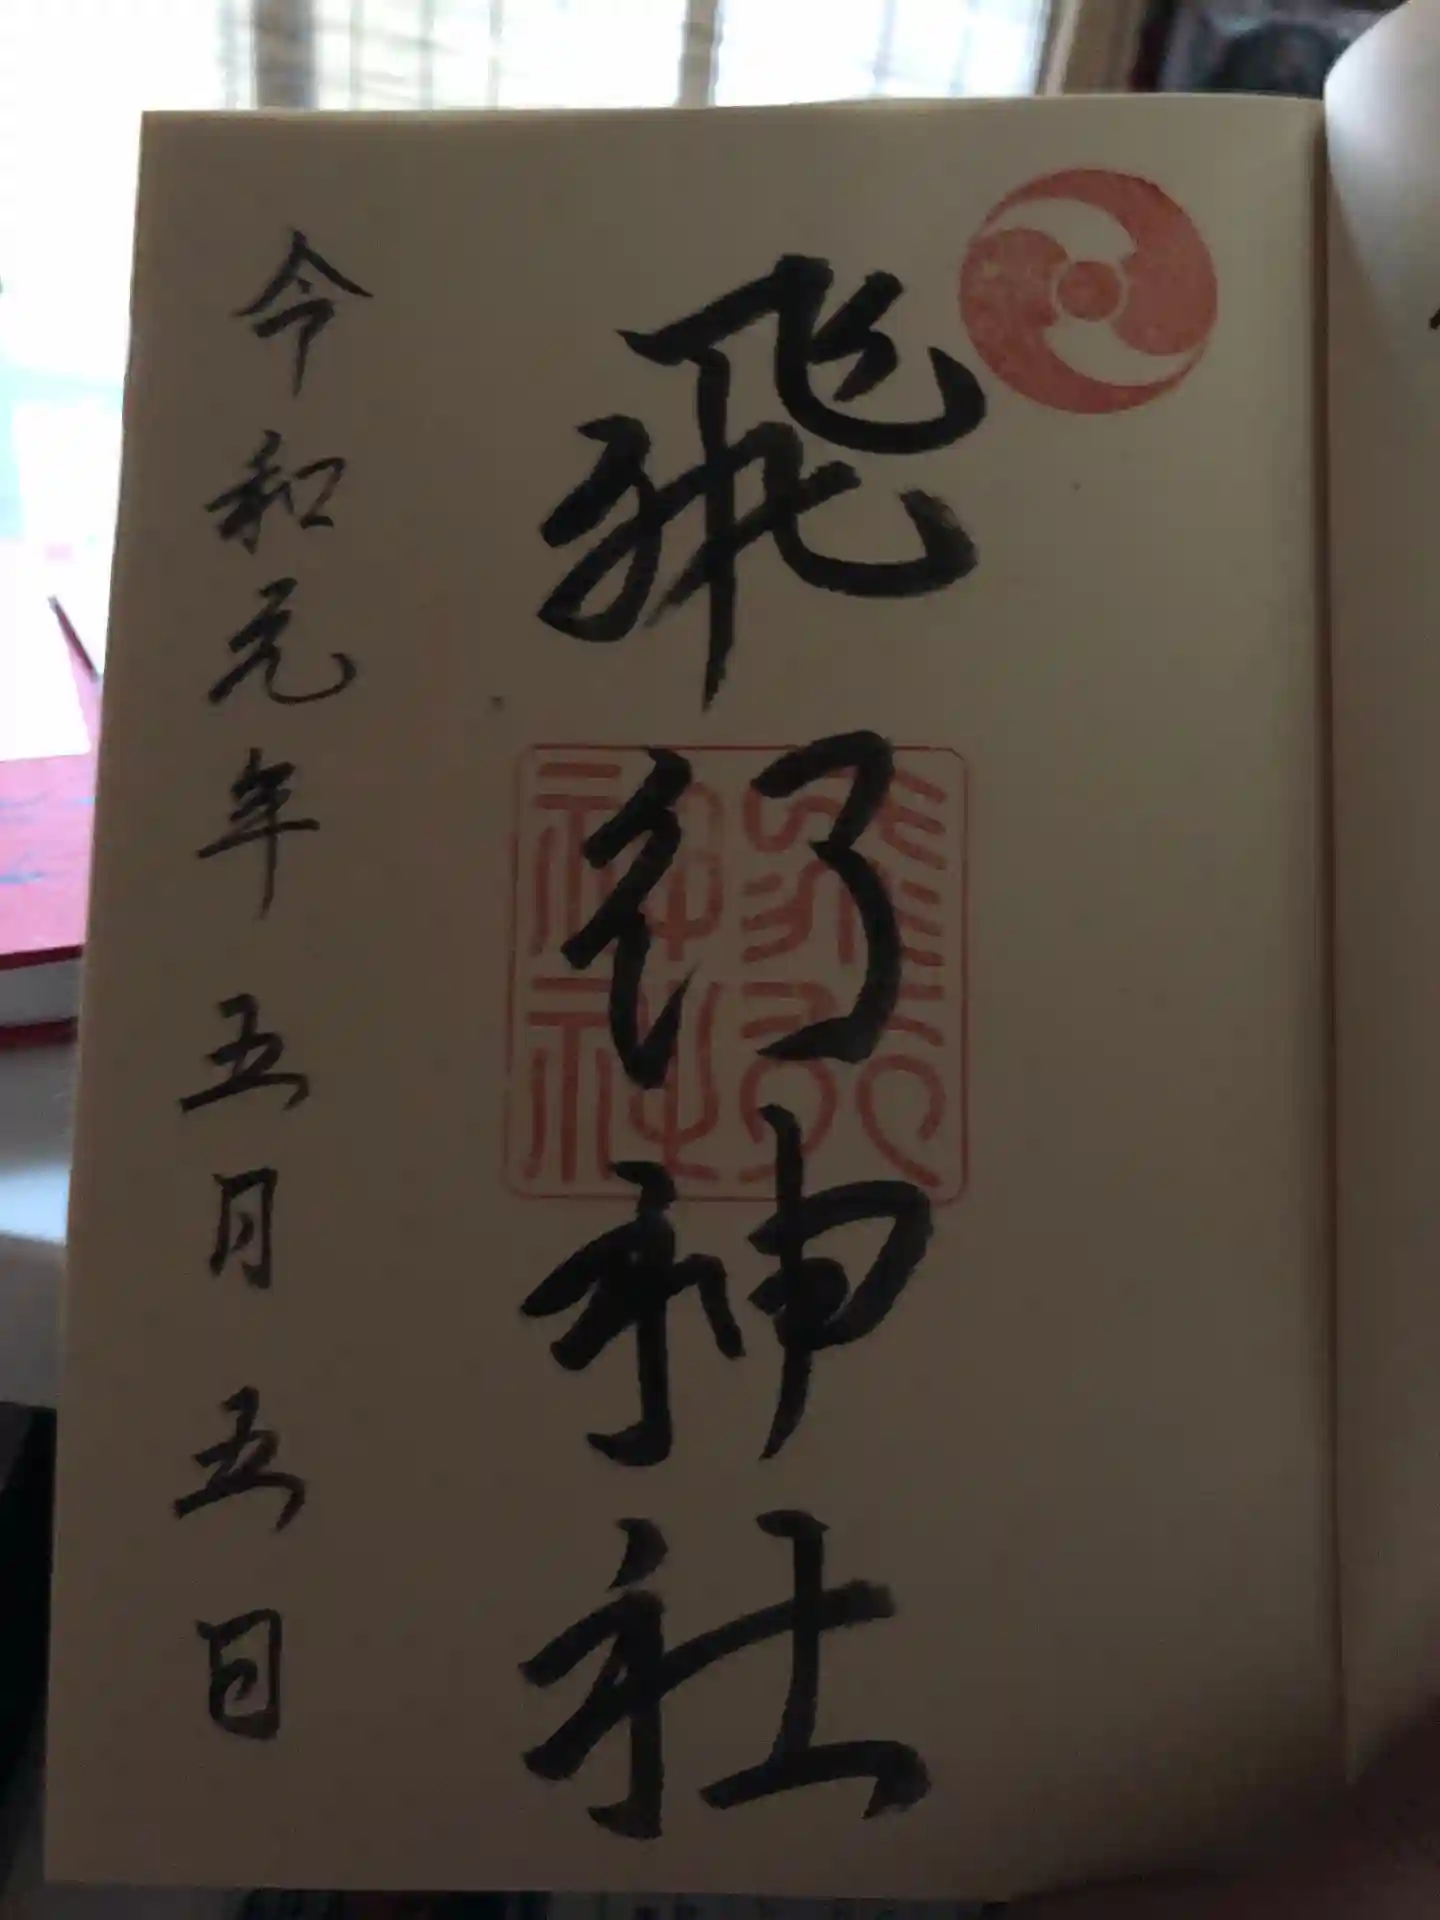 飛行神社
令和元年五月五日
飛行
神社